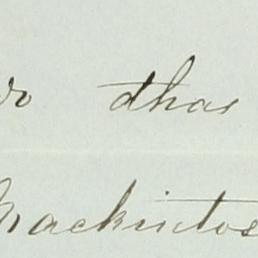 dhas
Mackintos